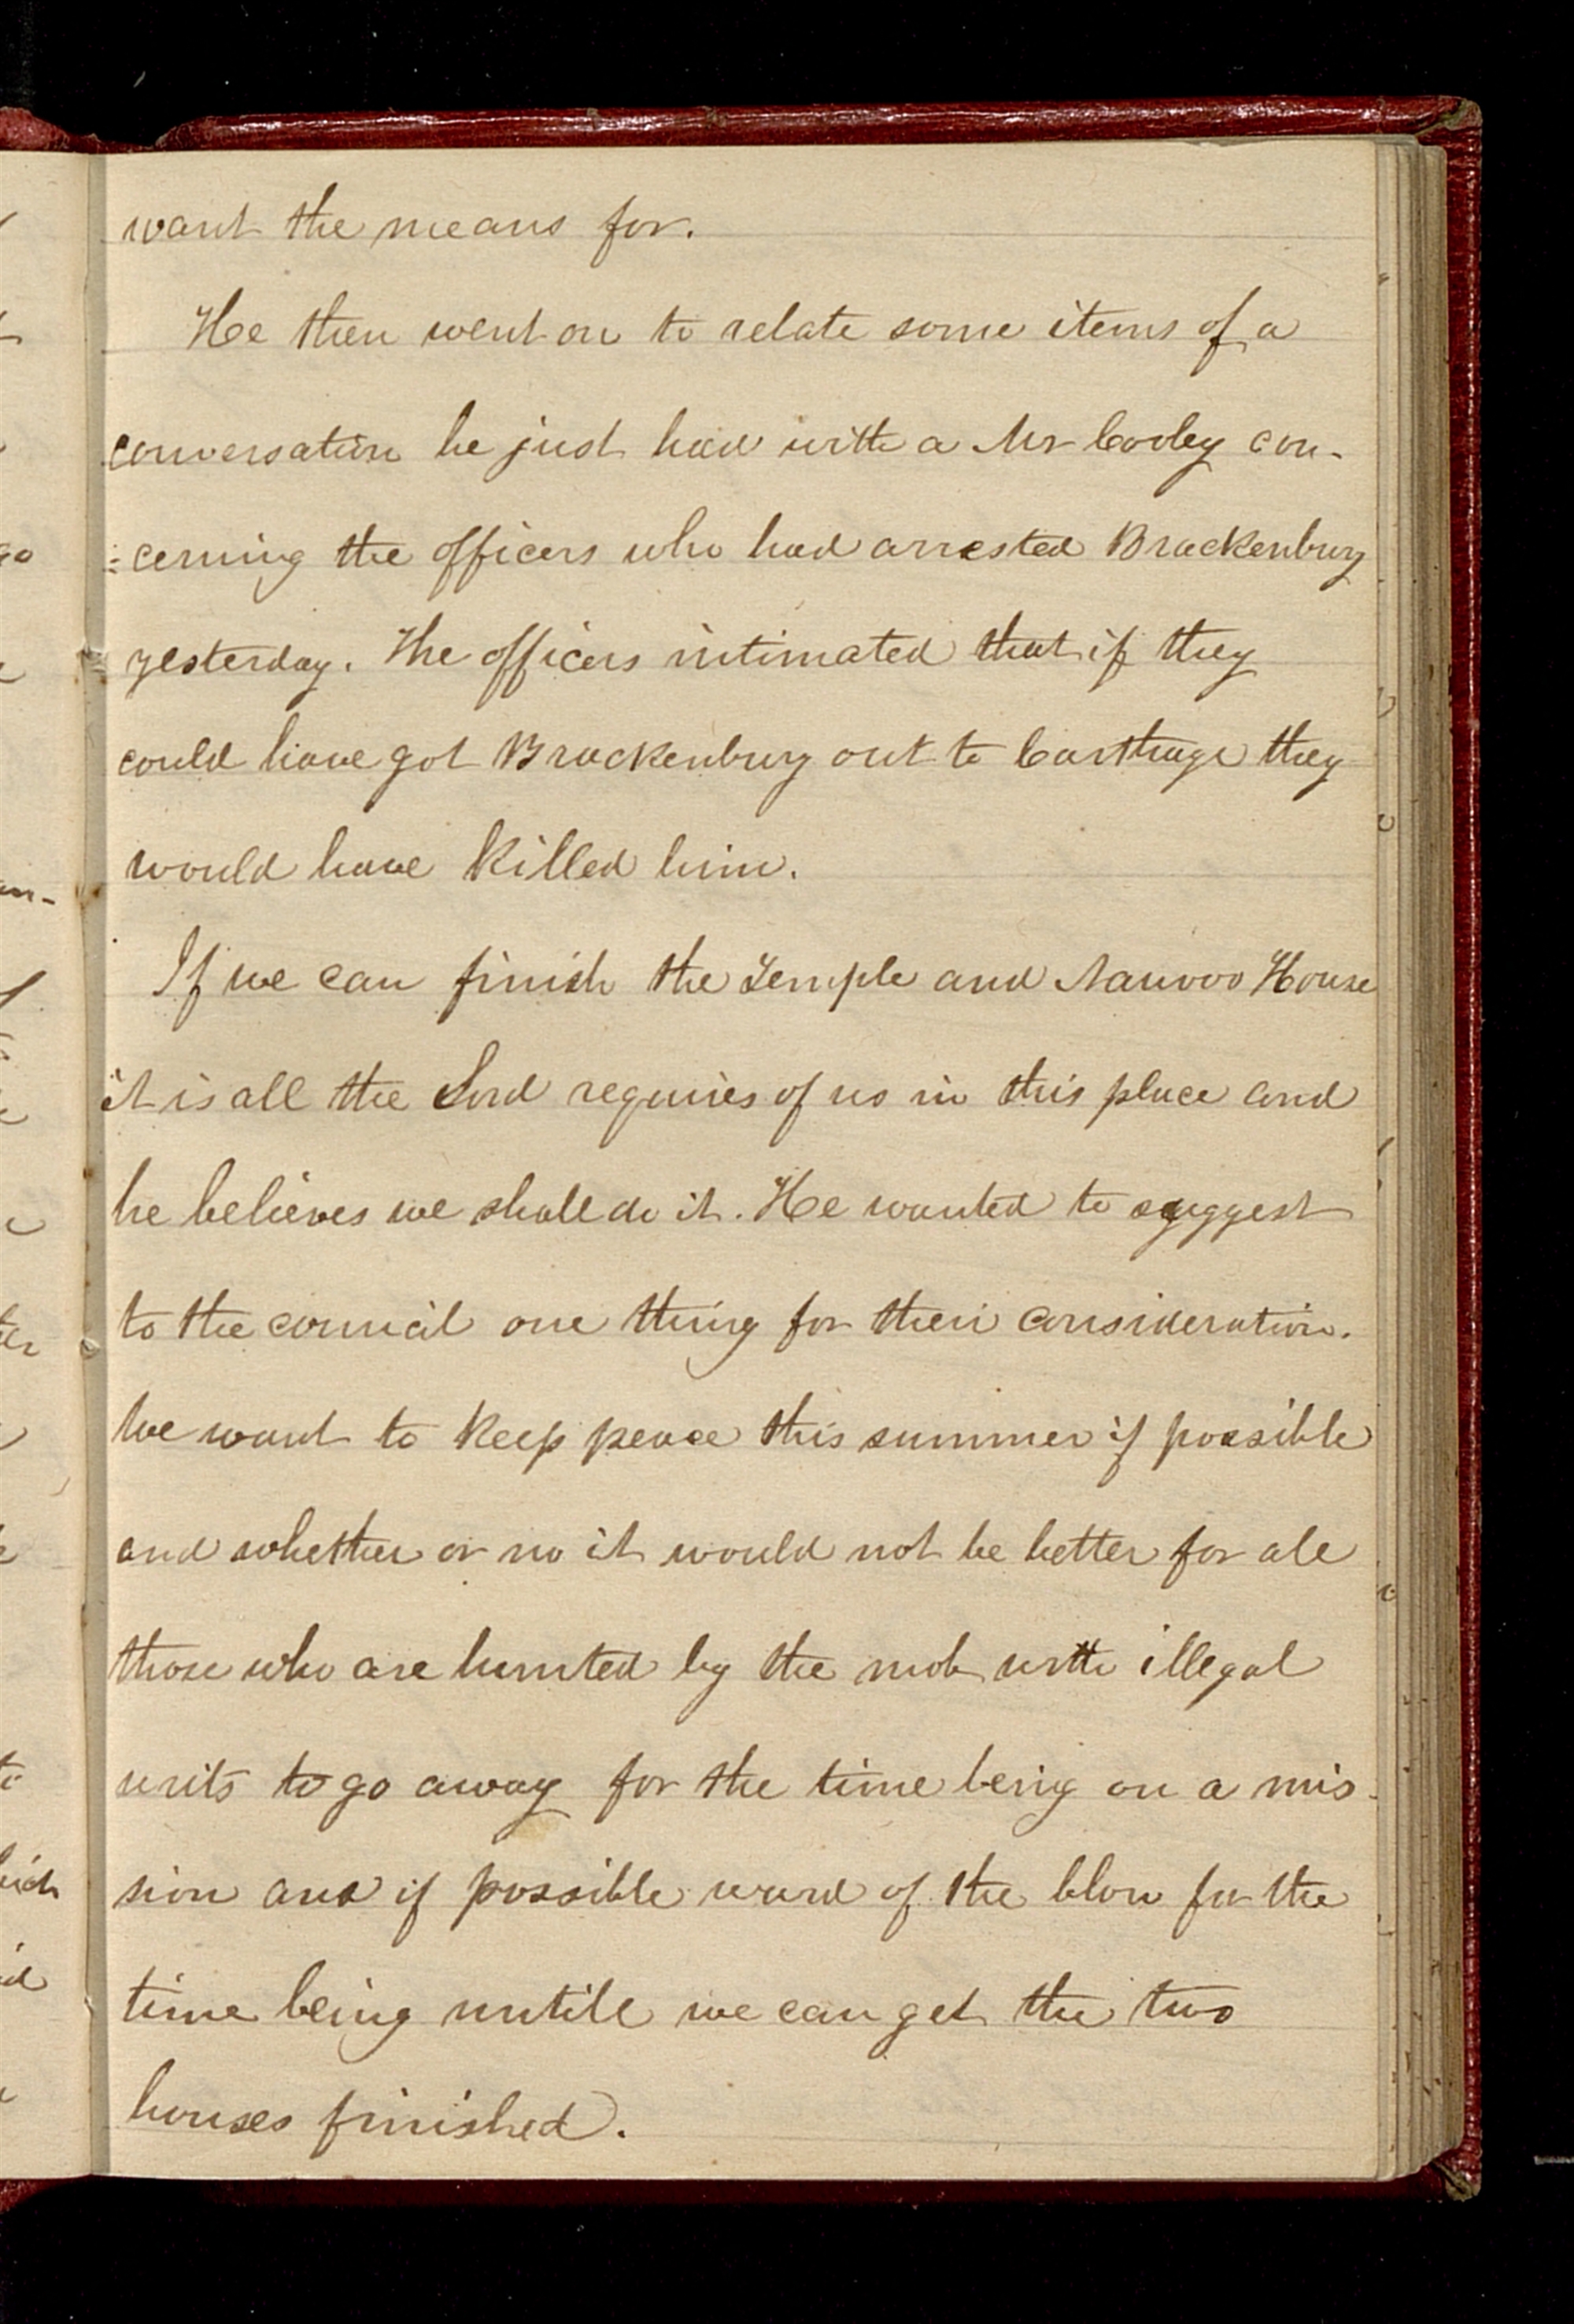 want the means for.
He then went on to relate some items of a
conversation he just had with a Mr Cooley con-
=cerning the officers who had arrested Brackenbury
yesterday. The officers intimated that if they
could have got Brackenbury out to Carthage they
would have killed him.
If we can finish the Temple and Nauvoo House
it is all the Lord requires of us in this place and
he believes we shall do it. He wanted to suggest
to the council one thing for their consideration.
We want to keep peace this summer if possible
and whether or no it would not be better for all
those who are hunted by the mob with illegal
writs to go away for the time being on a mis-
sion and if possible ward of the blow for the
time being untill we can get the two
houses finished.